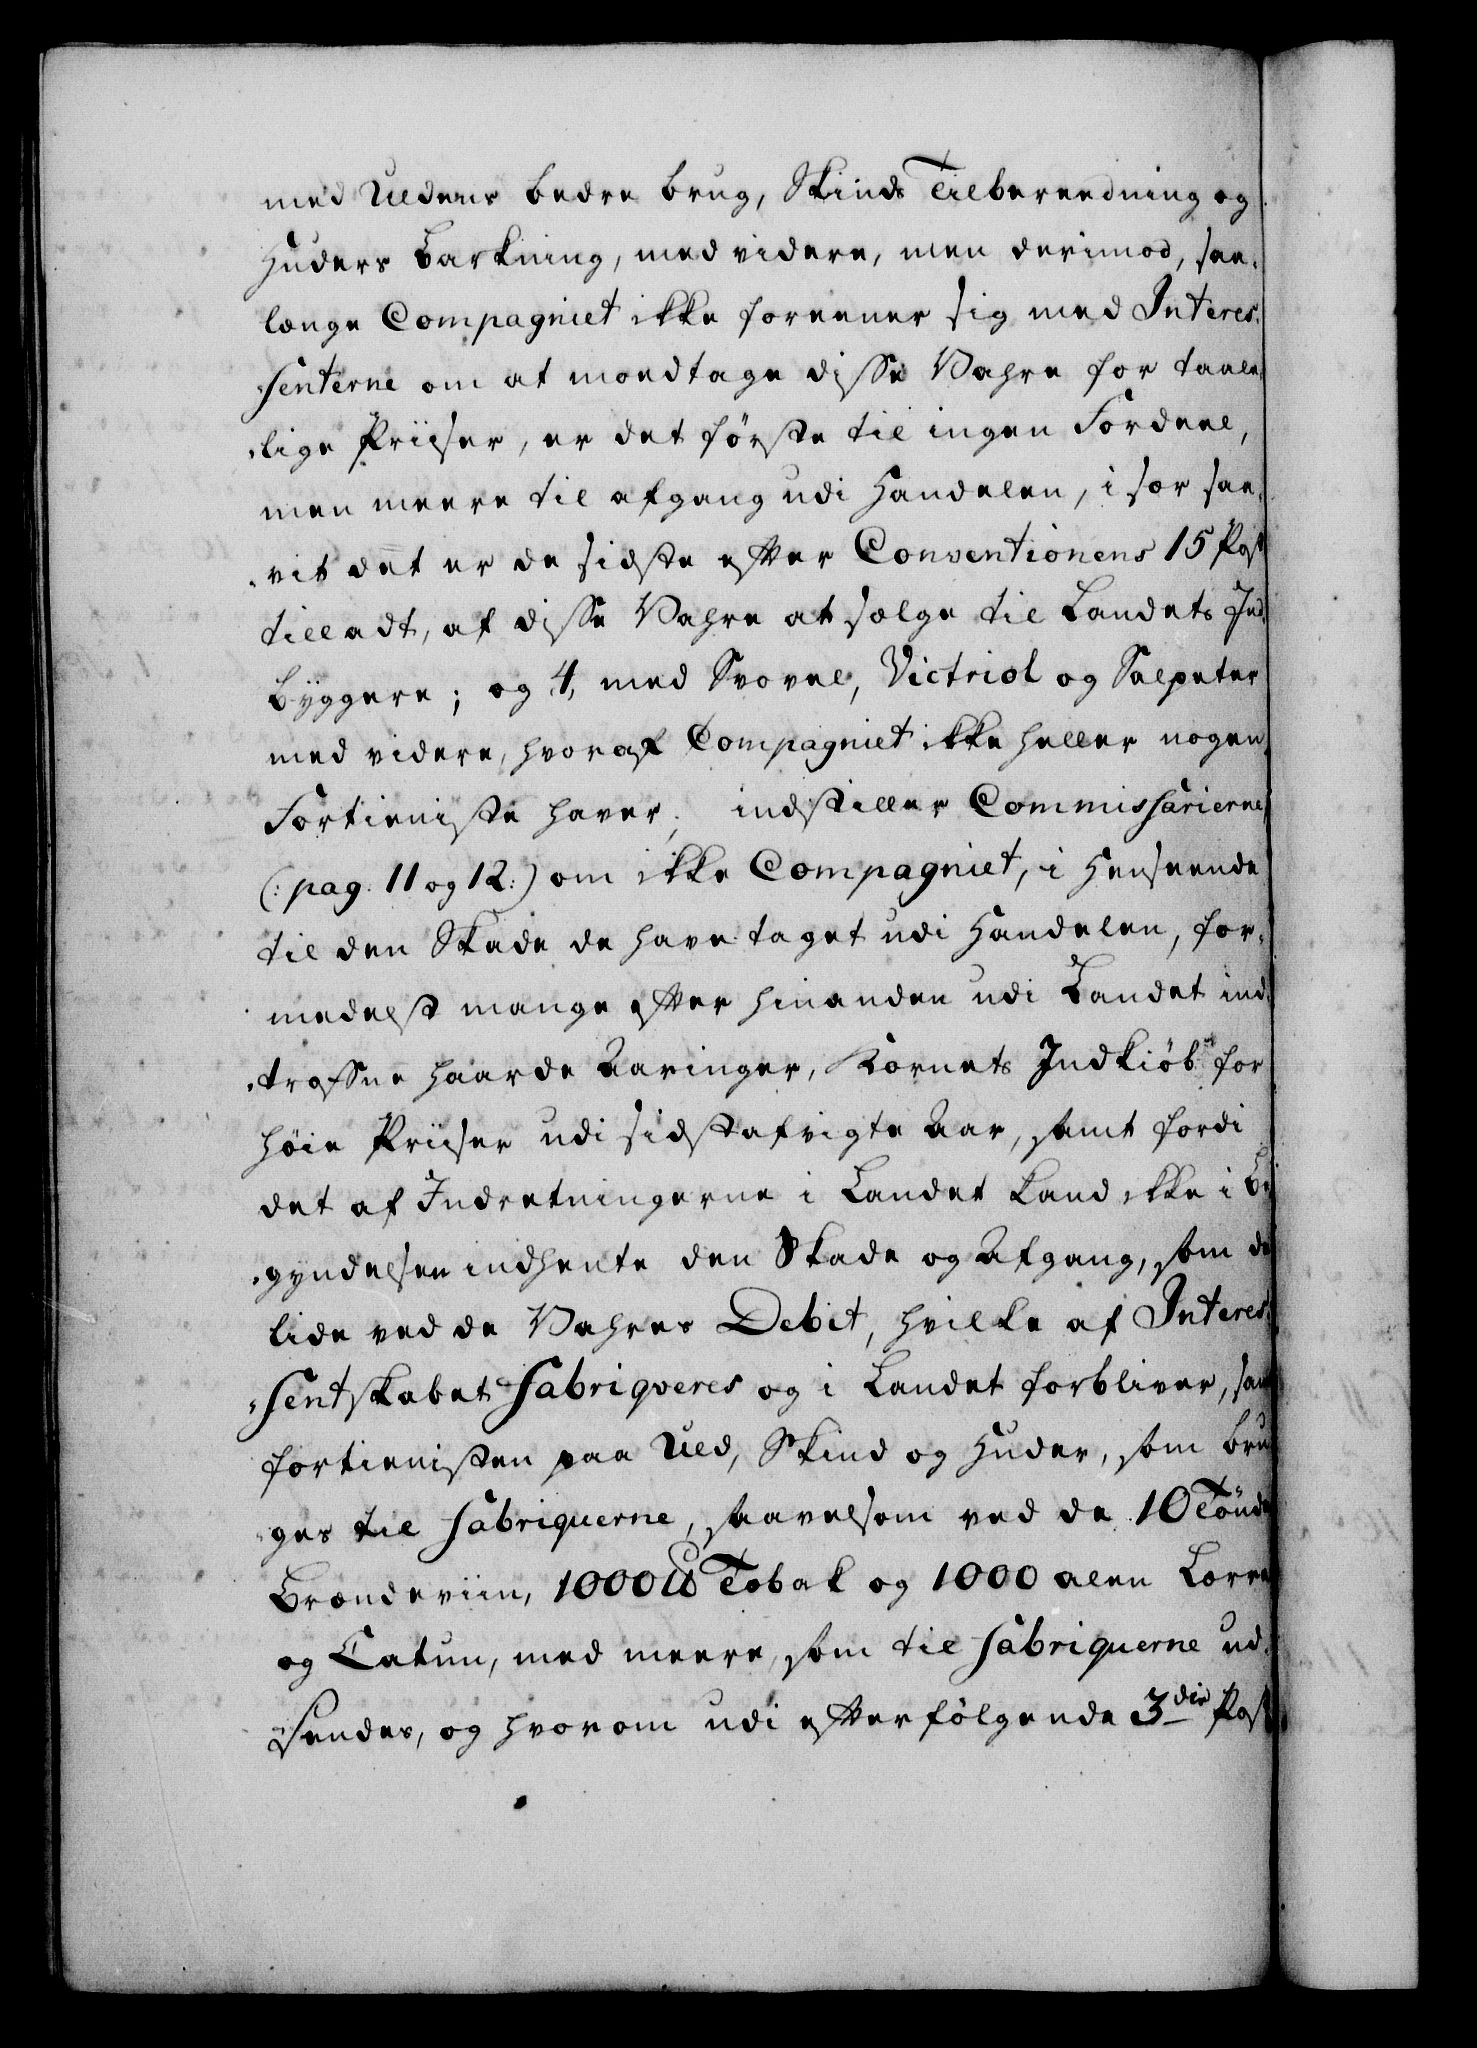 med Uldens bedre brug, Skinds Tilbereedning og
Huders Barkning, med videre, men derimod, saa-
længe Compagniet ikke foreener sig med Interes-
senterne om at modtage disse Vahre for taale-
lige Priiser, er det første til ingen Fordeel,
men meere til afgang udi Handelen, i sær saa-
vit det er de sidste efter Conventionens 15 Post
tilladt, af disse Vahre at sælge til Landets Ind-
byggere; og 4, med Svovel, Victriol og Salpeter
med videre, hvoraf Compagniet ikke heller nogen
Fortieniste haver; indstiller Commissarierne,
(: pag. 11 og 12:) om ikke Compagniet, i Henseende
til den Skade de have taget udi Handelen, for-
medelst mange efter hinanden udi Landet ind-
trafne haarde Aaringer, Kornets Indkiøb for
høie Priiser udi sidstafvigte Aar, samt fordi
det af Indretningerne i Landet kand ikke i Be-
gyndelsen indhente den Skade og Afgang, som de
lide ved de Vahres Debit, hvilke af Interes-
sentskabet fabriqveres og i Landet forbliver, samt
fortienisten paa Uld, Skind og Huder, som bru-
ges til fabriquerne, saavelsom ved de 10 Tönder
Brændeviin, 1000 ℔ Tobak og 1000 alen Lærret
og Catun, med meere, som til fabriquerne ud-
sendes, og hvorom udi efterfölgende 3die Post